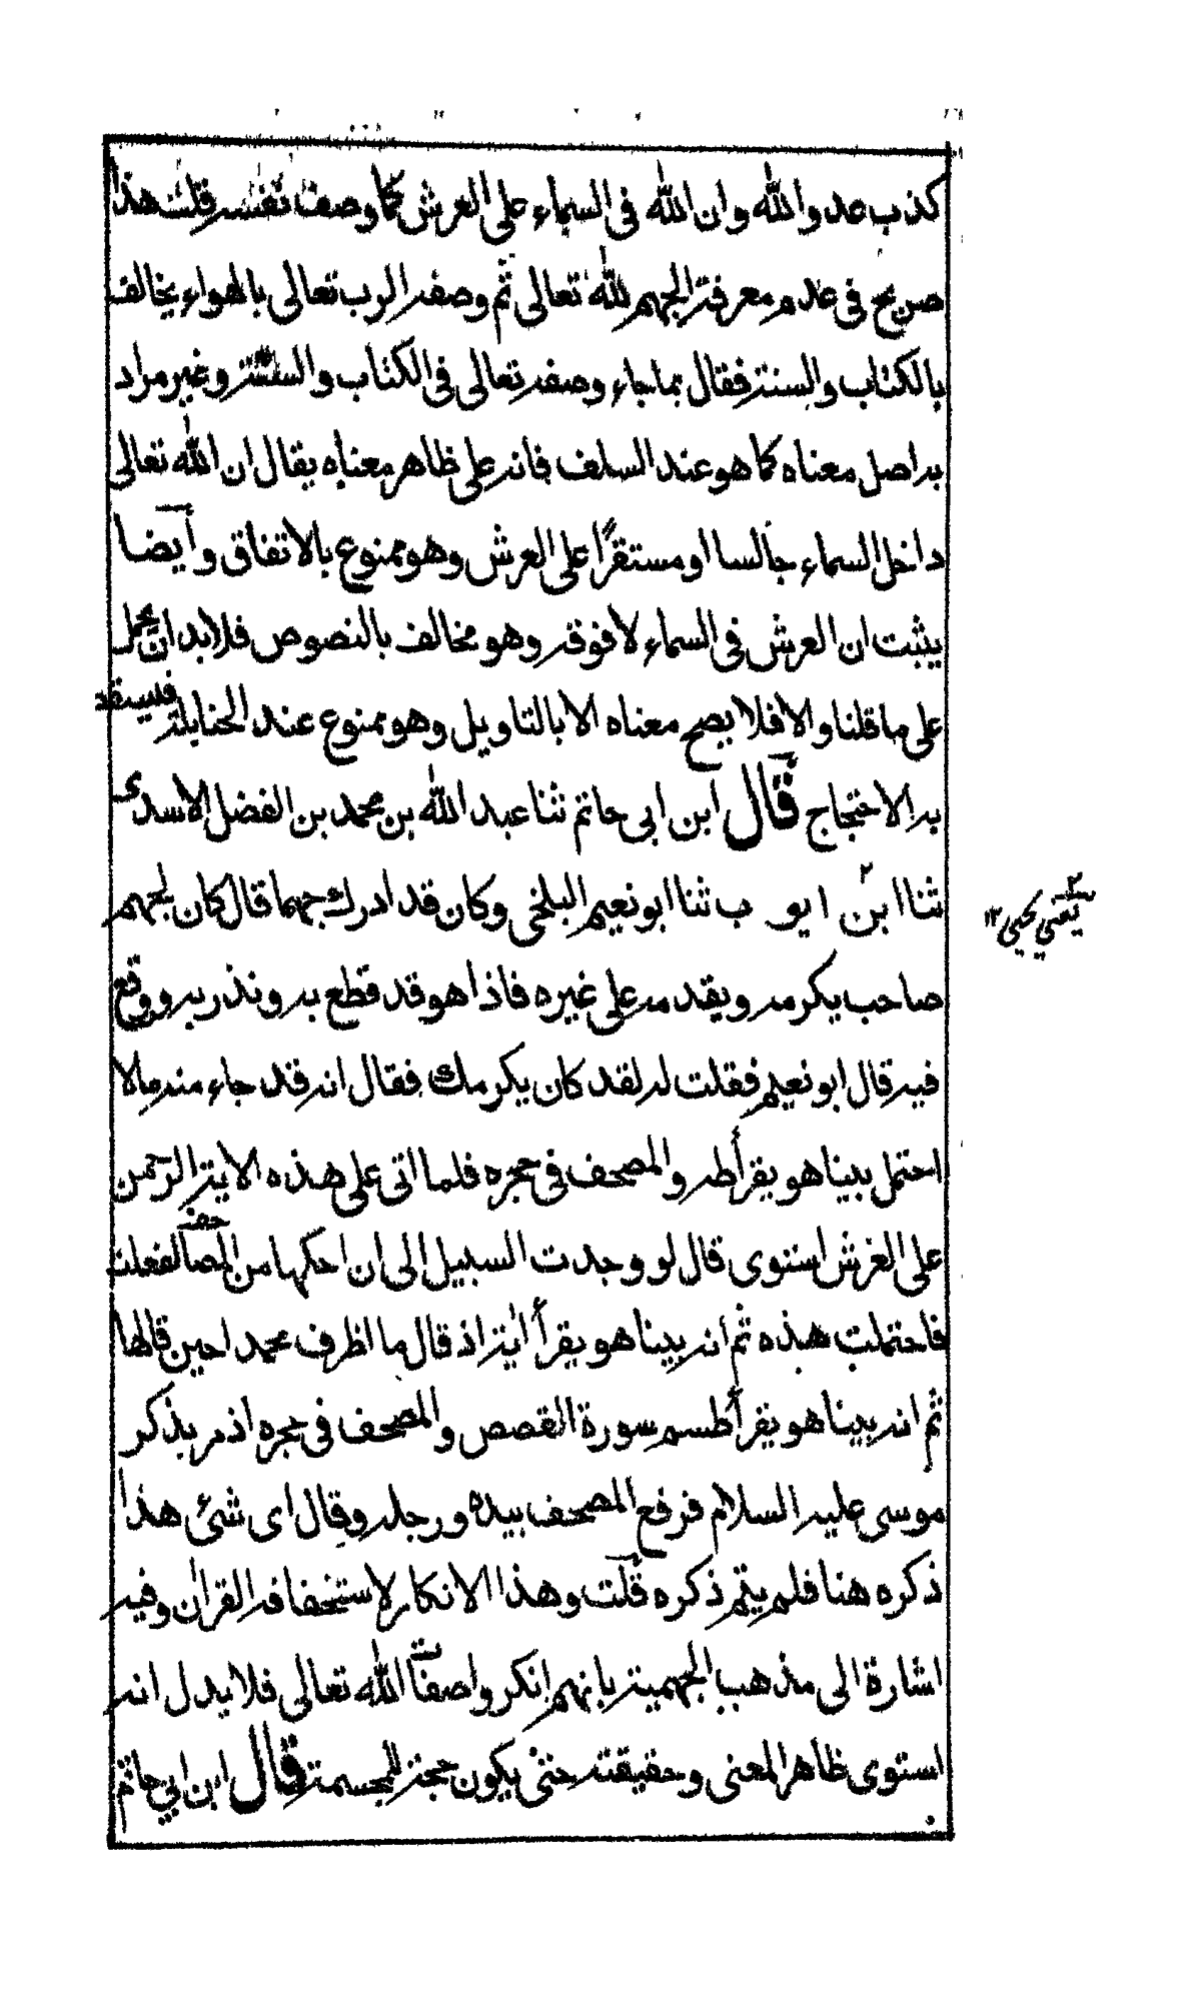 كذب عدو الله وان الله فى السماء على العرش كما وصف نفسه قلت هذا
صريح فى عدم معرفة الجهم لله تعالى ثم وصفه الرب تعالى بالهواء يخالف
بالكتاب والسنة فقال بماجاء وصفه تعالى فى الكتاب والسنة وغير مراد
به اصل معناه كما هو عند السلف فانه على ظاهر معناه يقال ان الله تعالى
داخل السماء جالسا او مستقرًا على العرش وهو ممنوع بالاتفاق وأيضا
يثبت ان العرش فى السماء لا فوقه وهو مخالف بالنصوص فلابد ان يحمل
على ما قلنا والا فلا يصح معناه الا بالتاويل وهو ممنوع عند الحنابلة فليسقط
به الاحتجاج قال ابن ابى حاتم ثنا عبد الله بن محمد بن الفضل الاسدى
ثنا ابن ايوب ثنا ابو نعيم البلخى وكان قد ادرك جهما قال كان لجهم
يعني يحيى ١٢
صاحب يكرمه ويقدمه على غيره فاذا هو قد قطع به ونذر به ووقع
فيه قال ابو نعيم فقلت له لقد كان يكرمك فقال انه قد جاء منه مالا
احتمل بينا هو يقرأ طه والمصحف فى حجره فلما اتى على هذه الاية الرحمن
على العرش استوى قال لو وجدت السبيل الى ان احكها من المصاحف لفعلت
فاحتملت هذه ثم انه بينا هو يقرأ اية اذ قال ما اظرف محمد احين قالها
ثم انه بينا هو يقرأ طسم سورة القصص والمصحف فى حجره اذ مر بذكر
موسى عليه السلام فرفع المصحف بيده ورجله وقال اى شئ هذا
ذكره هنا فلم يتم ذكره قلت وهذا الانكار لاستخفافه القران وفيه
اشارة الى مذهب الجهمية بانهم انكروا صفات الله تعالى فلا يدل انه
استوى ظاهر المعنى وحقيقته حتى يكون حجة للمجسمة قال ابن ابي حاتم